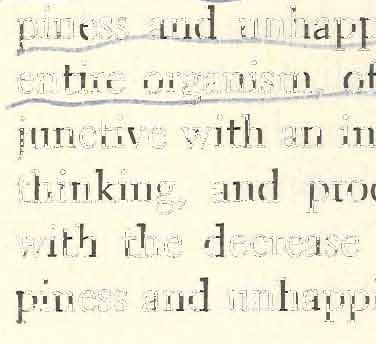 piness and unhapp
entire organism, of
junctive with an in
thinking, and prod
with the decrease
piness and unhappi